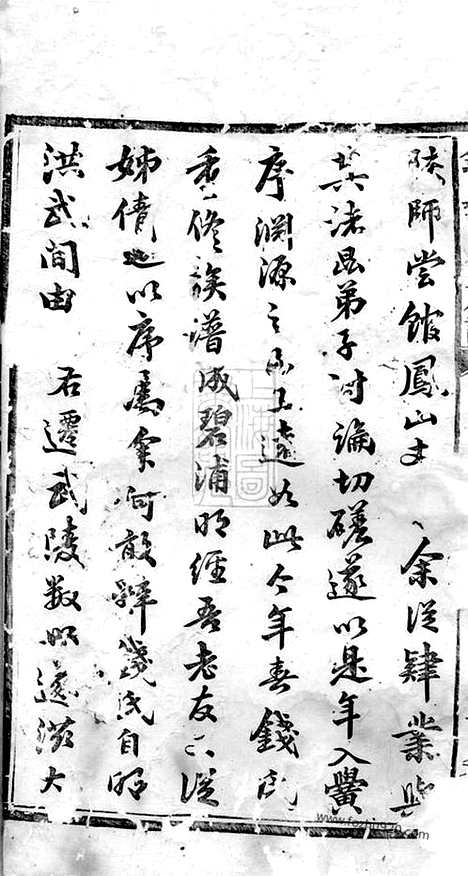 師嘗館鳳山 余從肄業與
其諸昆弟子討論切磋遂以是年入黌
序淵源之 上遠如此今年春錢氏
重修族譜成碧浦明經吾老友 從
姊倩 以序屬余何敢辭錢氏自明
洪武間由 右遷武陵數 遂滋大